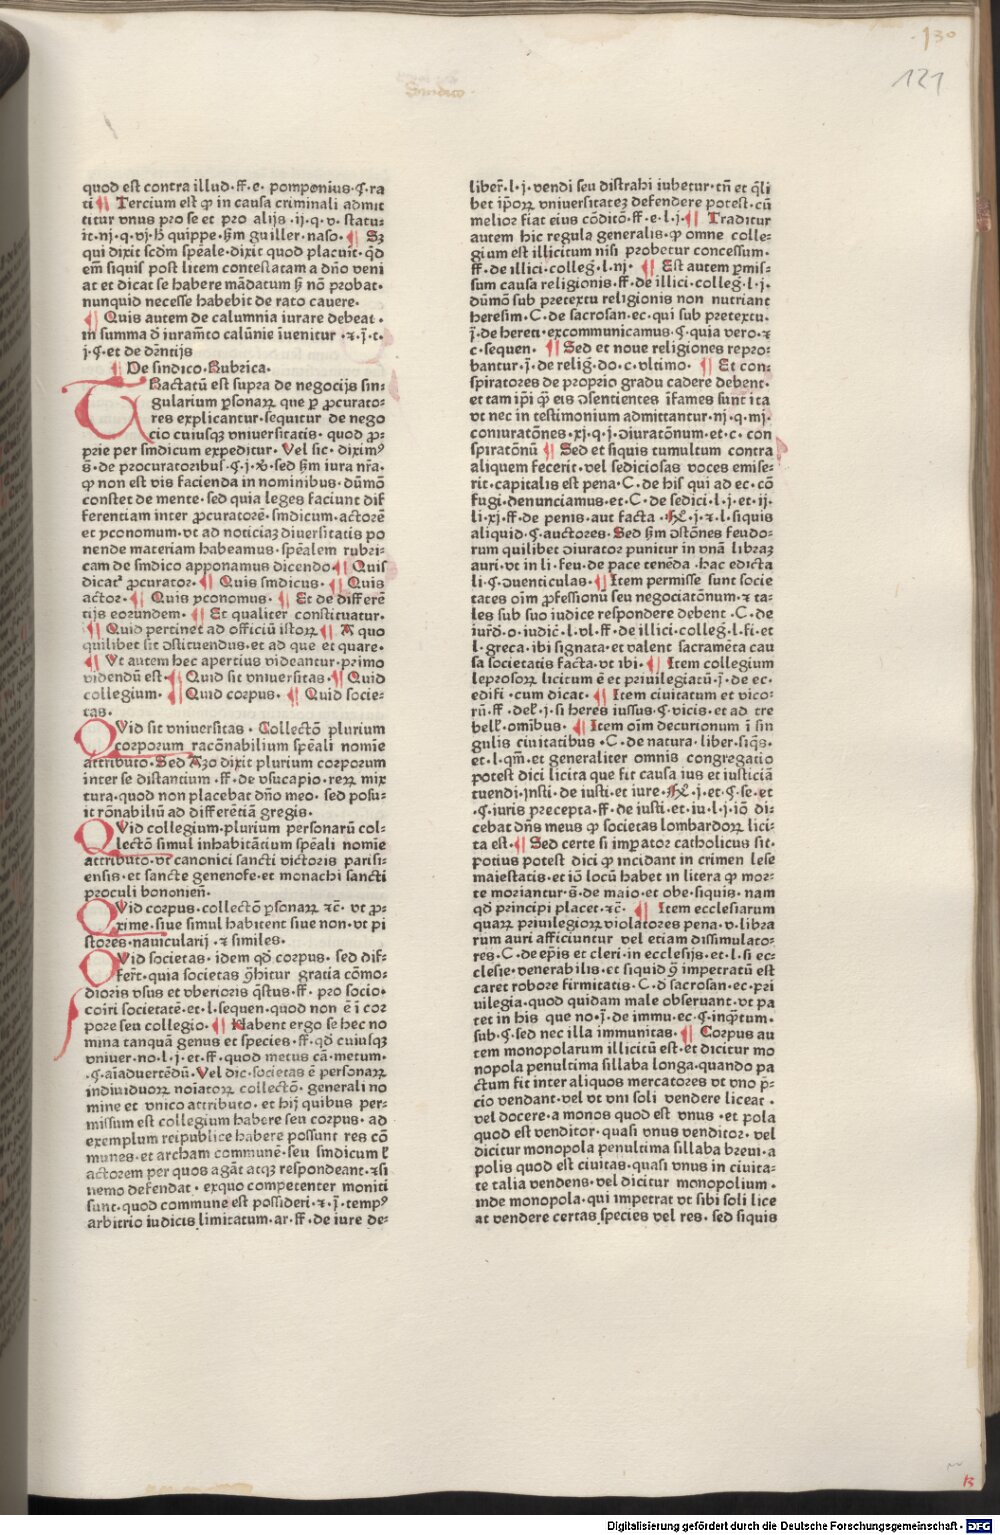 130
121
Sindico
quod est contra illud·ff·e· pomponius·ꝯ·ra
ti ¶ Tercium est ꝙ in causa criminali admit
titur vnus pro se et pro alijs·ij·q·v·statu-
it·
qui dixit scdm spẽale·dixit quod placuit·qđ
em̃ siquis post litem contestatam a dño veni
at et dicat se habere mãdatum ꝫ nõ probat·
nunquid necesse habebit de rato cauere·
¶ Quis autem de calumnia iurare debeat·
in summa đ iuramẽto calũnie iuenitur·⁊·j̃·t·
j·ꝯ·et de dẽntijs
¶ De sindico·Rubrica·
TRactatũ est supra de negocijs sin-
gularium ꝑsonaꝝ que ꝑ ꝓcurato-
res explicantur·sequitur de nego
cio cuiusqꝫ vniuersitatis·quod ꝓ-
prie per sindicum expeditur·Vel sic·diximꝰ
s̃·de procuratoribus·ꝯ·j·℣·sed ẜm iura nr̃a·
ꝙ non est vis facienda in nominibus·dũmõ
constet de mente·sed quia leges faciunt dif
ferentiam inter ꝓcuratorẽ·sindicum·actorẽ
et yconomum·vt ad noticiaꝫ diuersitatis po
nende materiam habeamus·spẽalem rubri-
cam de sindico apponamus dicendo ¶ Quis
dicatʳ ꝓcurator·¶ Quis sindicus·¶ Quis
actor·¶ Quis yconomus·¶ Et de differẽ
tijs eorundem·¶ Et qualiter constituatur·
¶ Quid pertinet ad officiũ istoꝝ ¶ A quo
quilibet sit ↄstituendus·et ad que et quare·
¶ Vt autem hec apertius videantur·primo
videndũ est·¶ Quid sit vniuersitas·¶ Quid
collegium·¶ Quid corpus·¶ Quid socie-
tas·
QVid sit vniuersitas·Collectõ plurium
corporum racõnabilium spẽali nomĩe
attributo·Sed Azo dixit plurium corporum
inter se distantium·ff·de vsucapio·reꝝ mix
tura·quod non placebat dño meo·sed posu-
it rõnabiliũ ad differẽtiã gregis·
QVid collegium·plurium personarũ col-
lectõ simul inhabitãtium spẽali nomĩe
attributo·vt canonici sancti victoris parisi-
ensis·et sancte genenofe·et monachi sancti
proculi bononieñ·
QVid corpus·collectõ ꝑsonaꝝ ⁊c̃·vt ꝓ-
xime·siue simul habitent siue non·vt pi
stores·nauicularij·⁊ similes·
QVid societas·idem qđ corpus·sed dif-
fer̃t·quia societas ꝯ̃hitur gratia cõmo-
dioris vsus et vberioris q̃stus·ff·pro socio·
coiri societatẽ·et·l·sequen·quod non ẽ ĩ cor
pore seu collegio·¶ Habent ergo se hec no
mina tanquã genus et species·ff·qđ cuiusqꝫ
vniuer·no·l·j·et·ff·quod metus cã·metum·
·ꝯ·aĩaduertẽdũ·Vel dic·societas ẽ personaꝝ
indiuiduoꝝ noĩatoꝝ collectõ·generali no
mine et vnico attributo·et hij quibus per-
missum est collegium habere seu corpus·ad
exemplum reipublice habere possunt res cõ
munes·et archam communẽ·seu sindicum ł
actorem per quos agãt atqꝫ respondeant·⁊si
nemo defendat·exquo competenter moniti
sunt·quod commune est possideri·⁊·j̃·tempꝰ
arbitrio iudicis limitatum·ar·ff·de iure de-
liber̃·l·j·vendi seu distrahi iubetur·tñ et q̃li
bet ip̃oꝝ vniuersitateꝫ defendere potest·cũ
melior fiat eius cõditõ·ff·e·l·j·¶ Traditur
autem hic regula generalis·ꝙ omne colle-
gium est illicitum nisi probetur concessum·
ff·de illici·colleg̃·l·nj·¶ Est autem ꝑmis-
sum causa religionis·ff·de illici·colleg̃·l·j·
dũmõ sub pretextu religionis non nutriant
heresim·C·de sacrosan·ec·qui sub pretextu·
j̃·de hereti·excommunicamus·ꝯ·quia vero·⁊
c·sequen·¶ Sed et noue religiones repro-
bantur·j̃·de relig̃·do·c·vltimo·¶ Et con-
spiratores de proprio gradu cadere debent·
et tam ip̃i ꝙ̃ eis ↄsentientes ĩfames sunt ita
vt nec in testimonium admittantur·nj·q·mj·
coniuratõnes·xj·q·j·ↄiuratõnum·et·c·con
spiratõnũ ¶ Sed et siquis tumultum contra
aliquem fecerit·vel sediciosas voces emise-
rit·capitalis est pena·C·de his qui ad ec·cõ
fugi·denunciamus·et·C·de sedici·l·j·et·ij·
li·xj·ff·de penis·aut facta·℟·j·⁊·l·siquis
aliquid·ꝯ·auctores·Sed ẜm ↄstõnes feudo-
rum quilibet ↄiurator punitur in vnã libraꝫ
auri·vt in li·feu·de pace tenẽda·hac edicta
li·ꝯ·ↄuenticulas·¶ Item permisse sunt socie
tates oĩm ꝓfessionũ seu negociatõnum·⁊ ta-
les sub suo iudice respondere debent·C·de
iurđ·o·iudic̃·l·vl·ff·de illici·colleg̃·l·fi·et
l·greca·ibi signata·et valent sacramẽta cau
sa societatis facta·vt ibi·¶ Item collegium
leprosoꝝ licitum ẽ et priuilegiatũ·j̃·de ec·
edifi·cum dicat·¶ Item ciuitatum et vico-
rũ·ff·del̃·j·si heres iussus·ꝯ·vicis·et ad tre
bell̃·omĩbus·¶ Item oĩm decurionum ĩ sin
gulis ciuitatibus·C·de natura·liber·siq̃s·
et·l·qm̃·et generaliter omnis congregatio
potest dici licita que fit causa ius et iusticiã
tuendi·Insti·de iusti·et iure·℟·j·et·ꝯ·se·et
·ꝯ·iuris precepta·ff·de iusti·et·iu·l·j·iõ di-
cebat dñs meus ꝙ societas lombardoꝝ lici-
ta est·¶ Sed certe si imꝑator catholicus sit·
potius potest dici ꝙ incidant in crimen lese
maiestatis·et iõ locũ habet in litera ꝙ mor-
te moriantur·s̃·de maio·et obe·siquis·nam
qđ principi placet·⁊c̃·¶ Item ecclesiarum
quaꝝ priuilegioꝝ violatores pena·v·libra
rum auri afficiuntur vel etiam dissimulato-
res·C·de ep̃is et cleri·in ecclesijs·et·l·si ec-
clesie·venerabilis·et siquid ꝯ̃ impetratũ est
caret robore firmitatis·C·đ sacrosan·ec·pri
uilegia·quod quidam male obseruant·vt pa
tet in his que no·j̃·de immu·ec·ꝯ·inꝑtum·
sub·ꝯ·sed nec illa immunitas·¶ Corpus au
tem monopolarum illicitũ est·et dicitur mo
nopola penultima sillaba longa·quando pa
ctum fit inter aliquos mercatores vt vno p̃-
cio vendant·vel vt vni soli vendere liceat·
vel docere·a monos quod est vnus·et pola
quod est venditor·quasi vnus venditor·vel
dicitur monopola penultima sillaba breui·a
polis quod est ciuitas·quasi vnus in ciuita-
te talia vendens·vel dicitur monopolium·
inde monopola·qui impetrat vt sibi soli lice
at vendere certas species vel res·sed siquis
Digitalisierung gefördert durch die Deutsche Forschungsgemeinschaft · DFG